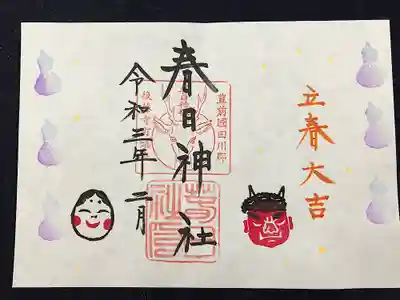 立春大吉
豊前國田川郡
春日神社
令和三年二月